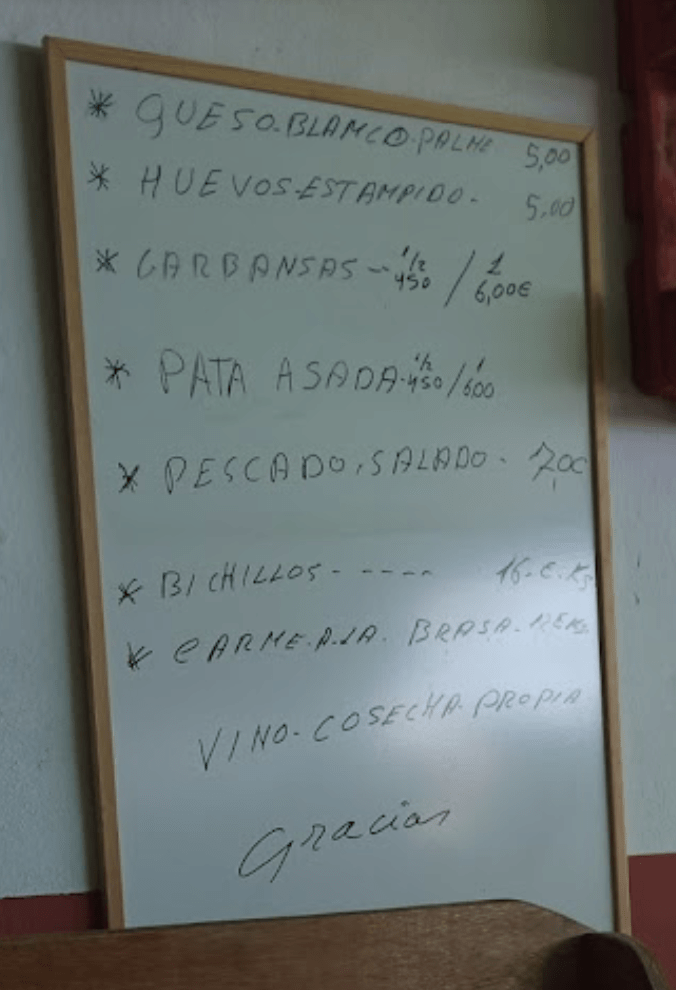 * QUESO-BLAMCO-PALME 5,00
* HUEVOS-ESTAMPIDO- 5,00
* GARBANSAS - 1/2 450 / 1 6,00€
* PATA ASADA - 1/2 450 / 1 6,00
* PESCADO, SALADO - 7,00
* BICHILLOS - ---- 16-€-KG
* CARME-A-LA-BRASA-
VINO-COSECHA-PROPIA
Gracias